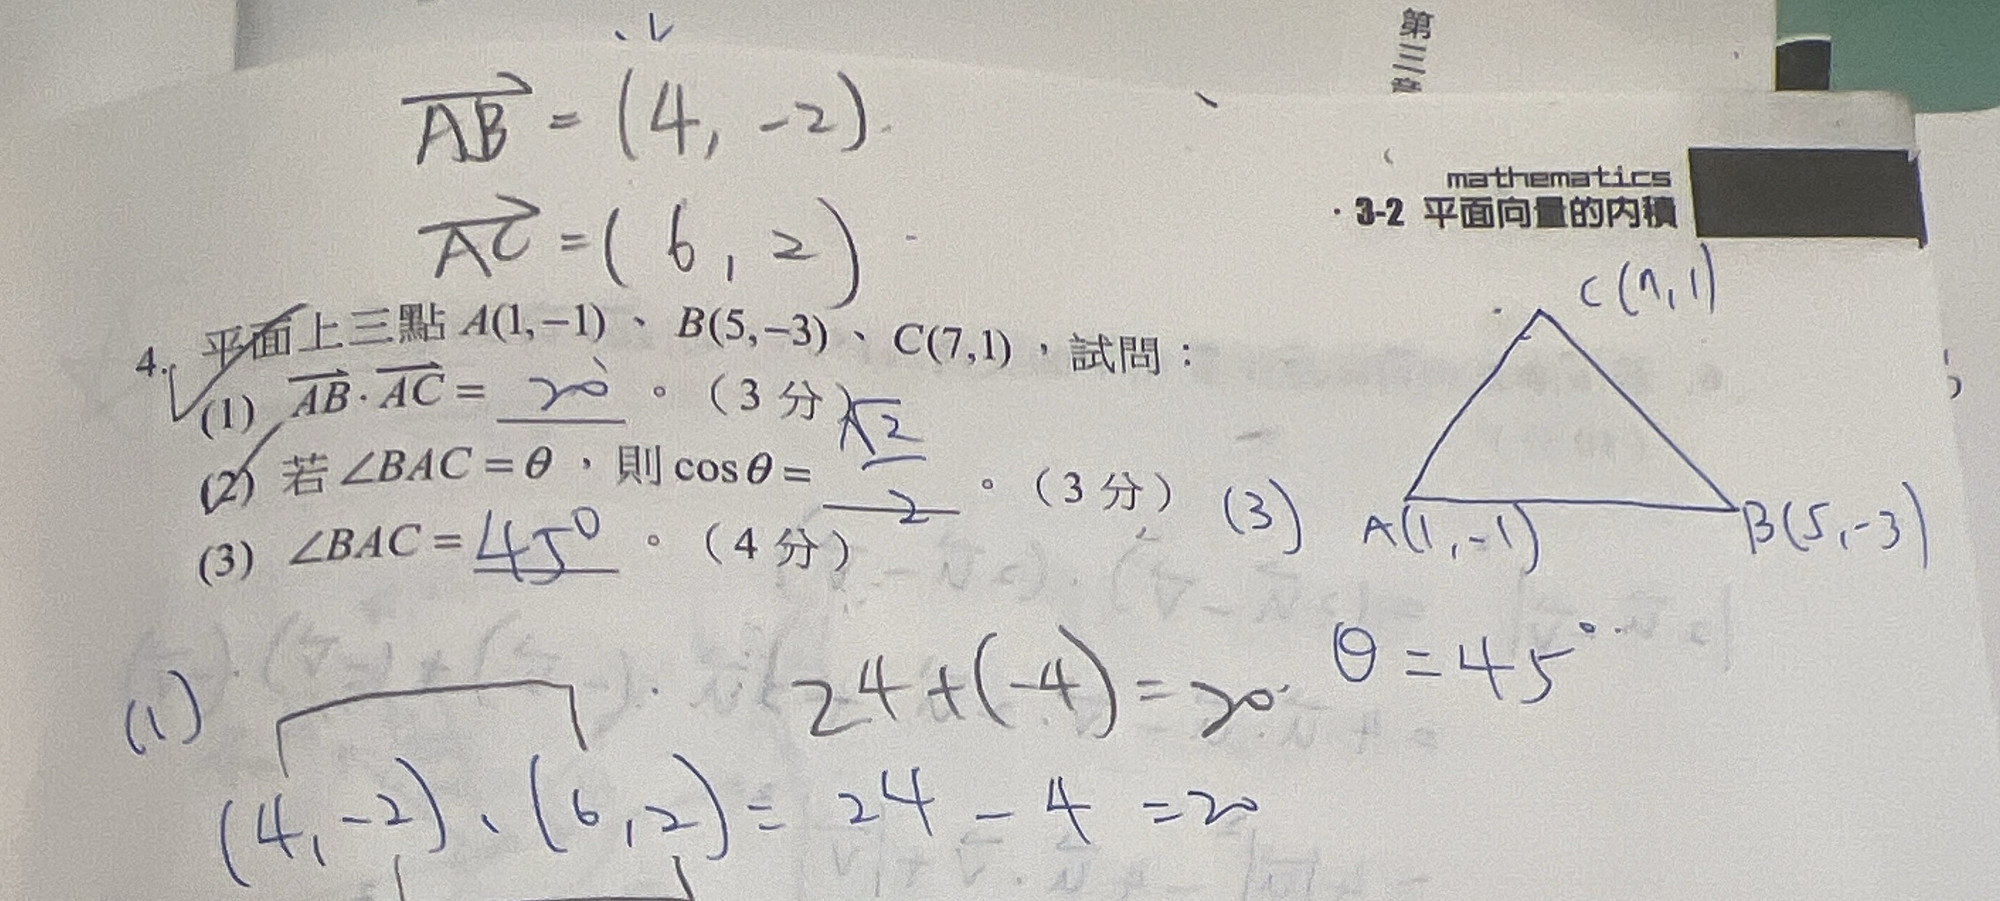 第三章
AB = (4, -2)
AC = (6, 2)
mathematics
· 3-2 平面向量的內積
4. 平面上三點 A(1,-1)、B(5,-3)、C(7,1),試問:
(1) AB · AC = 20 。(3 分)
(2) 若 ∠BAC = θ,則 cos θ = √2/2 。(3 分)
(3) ∠BAC = 45° 。(4 分)
(3)
C(7,1)
A(1,-1)
B(5,-3)
θ = 45°
(1)
24+(-4) = 20
(4,-2)、(6,2) = 24 - 4 = 20